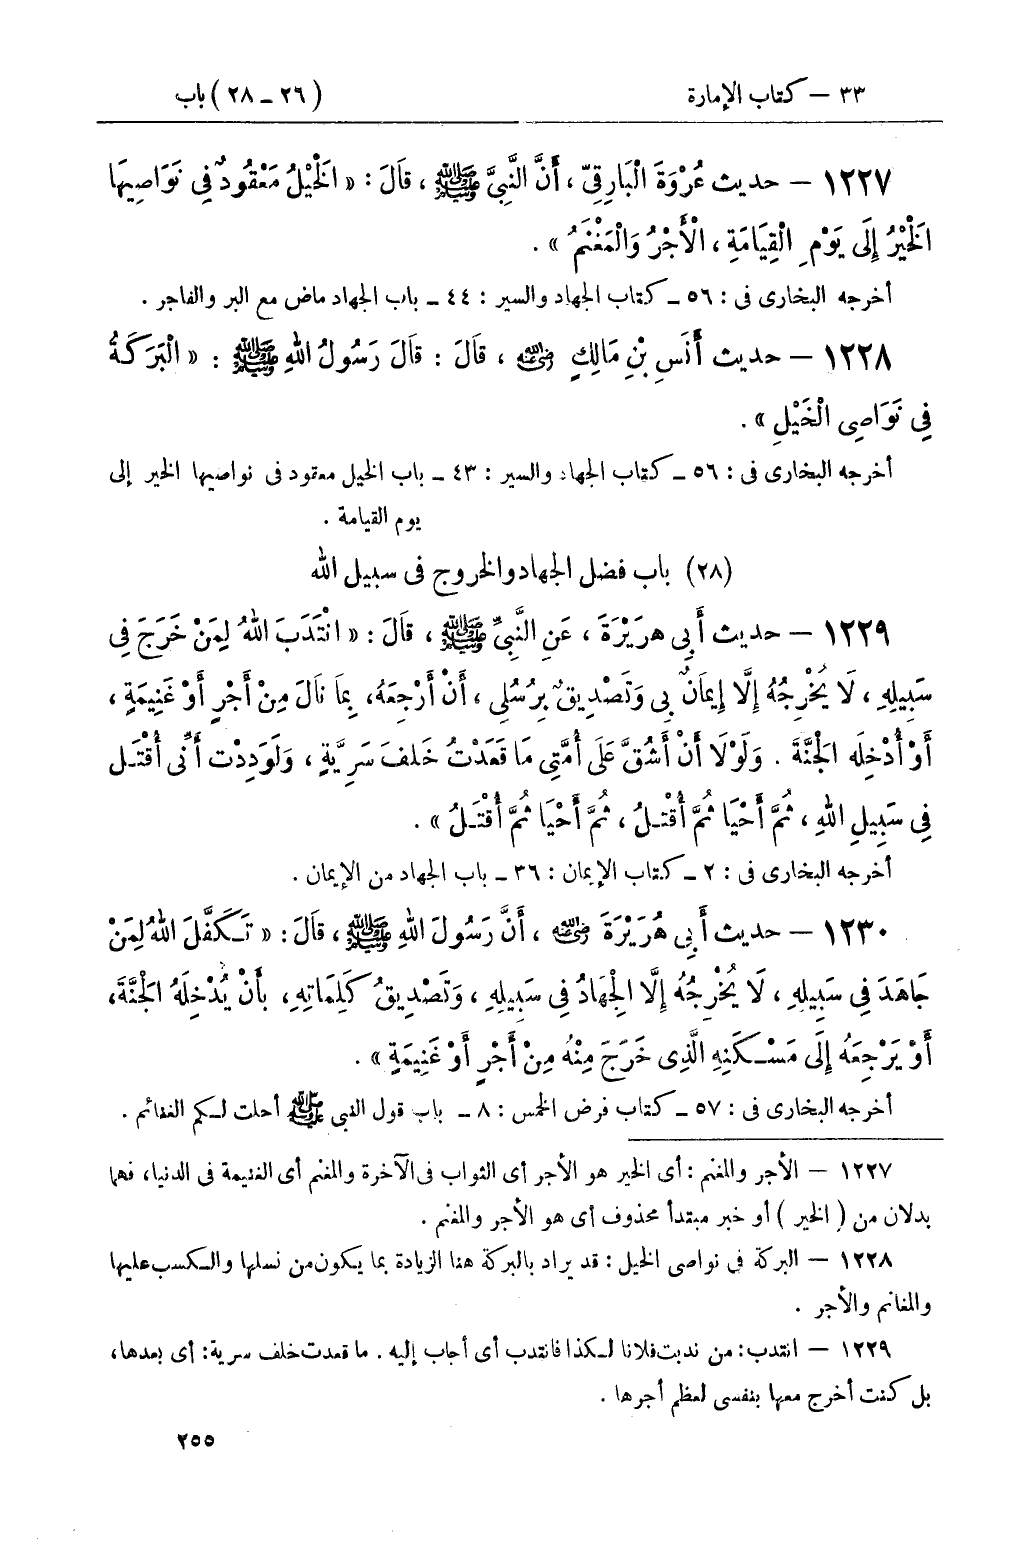 ٣٣ – كتاب الإمارة (٢٦ – ٢٨) باب
١٢٢٧ – حديث عُرْوَةَ الْبَارِقِيِّ ، أَنَّ النَّبِيَّ ﷺ ، قَالَ : « الْخَيْلُ مَعْقُودٌ فِي نَوَاصِيهَا
الْخَيْرُ إِلَى يَوْمِ الْقِيَامَةِ ، الْأَجْرُ وَالْمَغْنَمُ » .
أخرجه البخارى فى : ٥٦ ـ كتاب الجهاد والسير : ٤٤ ـ باب الجهاد ماض مع البر والفاجر .
١٢٢٨ – حديث أَنَسِ بْنِ مَالِكٍ رضي الله عنه ، قَالَ : قَالَ رَسُولُ اللهِ ﷺ : « الْبَرَكَةُ
فِي نَوَاصِى الْخَيْلِ » .
أخرجه البخارى فى : ٥٦ ـ كتاب الجهاد والسير : ٤٣ ـ باب الخيل معقود فى نواصيها الخير إلى
يوم القيامة .
(٢٨) باب فضل الجهاد والخروج فى سبيل الله
١٢٢٩ – حديث أَبِي هُرَيْرَةَ ، عَنِ النَّبِيِّ ﷺ ، قَالَ : « انْتَدَبَ اللهُ لِمَنْ خَرَجَ فِي
سَبِيلِهِ ، لَا يُخْرِجُهُ إِلَّا إِيمَانٌ بِي وَتَصْدِيقٌ بِرُسُلِي ، أَنْ أَرْجِعَهُ، بِمَا نَالَ مِنْ أَجْرٍ أَوْ غَنِيمَةٍ ،
أَوْ أُدْخِلَه الْجَنَّةَ . وَلَوْلَا أَنْ أَشُقَّ عَلَى أُمَّتِي مَا قَعَدْتُ خَلفَ سَرِيَّةٍ ، وَلَوَدِدْت أَنِّى أُقْتَـل
فِي سَبِيلِ اللهِ ، ثُمَّ أَحْيَا ثُمَّ أُقْتَـلُ ، ثُمَّ أَحْيَا ثُمَّ أُقْتَـلُ » .
أخرجه البخارى فى : ٢ ـ كتاب الإيمان : ٣٦ ـ باب الجهاد من الإيمان .
١٢٣٠ – حديث أَبِي هُرَيْرَةَ رضي الله عنه ، أَنَّ رَسُولَ اللهِ ﷺ ، قَالَ : « تَـكَفَّلَ اللهُ لِمَنْ
جَاهَدَ فِي سَبِيلِهِ ، لَا يُخْرِجُهُ إِلَّا الْجِهَادُ فِي سَبِيلِهِ ، وَتَصْدِيقُ كَلِمَاتِهِ، بِأَنْ يُدْخِلَهُ الْجَنَّةَ،
أَوْ يَرْجِعَهُ إِلَى مَسْـكَنِهِ الَّذِى خَرَجَ مِنْهُ مِنْ أَجْرٍ أَوْ غَنِيمَةٍ » .
أخرجه البخارى فى : ٥٧ ـ كتاب فرض الخمس : ٨ ـ باب قول النبى ﷺ أحلت لـكم الغنائم .
١٢٢٧ – الأجر والمغنم : أى الخير هو الأجر أى الثواب فى الآخرة والمغنم أى الغنيمة فى الدنيا، فهما
بدلان من ( الخير ) أو خبر مبتدأ محذوف أى هو الأجر والمغنم .
١٢٢٨ – البركة فى نواصى الخيل : قد يراد بالبركة هنا الزيادة بما يكون من نسلها والـكسب عليها
والمغانم والأجر .
١٢٢٩ – انتدب : من ندبت فلانا لـكذا فانتدب أى أجاب إليه . ما قعدت خلف سرية : أى بعدها،
بل كنت أخرج معها بنفسى لعظم أجرها .
٢٥٥